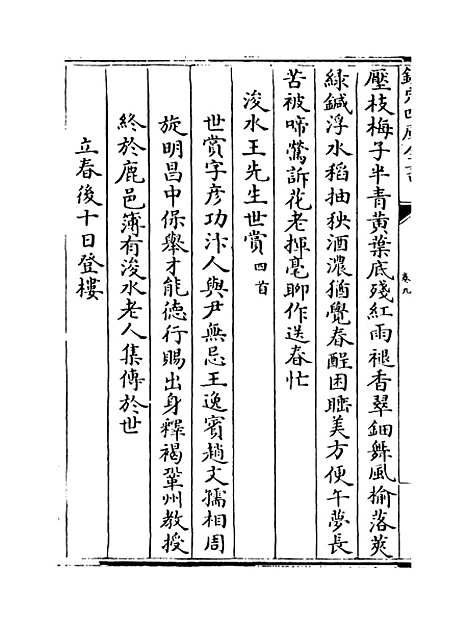 欽定四庫全書
卷九
壓枝梅子半青黃葉底殘紅雨褪香翠鈿舞風榆落莢
綠鍼浮水稻抽秧酒濃猶覺春酲困睡美方便午夢長
苦被啼鶯訴花老揮毫聊作送春忙
浚水王先生世賞四首
世賞字彥功汴人與尹無忌王逸賓趙文孺相周
旋明昌中保舉才能德行賜出身釋褐鞏州教授
終於鹿邑簿有浚水老人集傳於世
立春後十日登樓